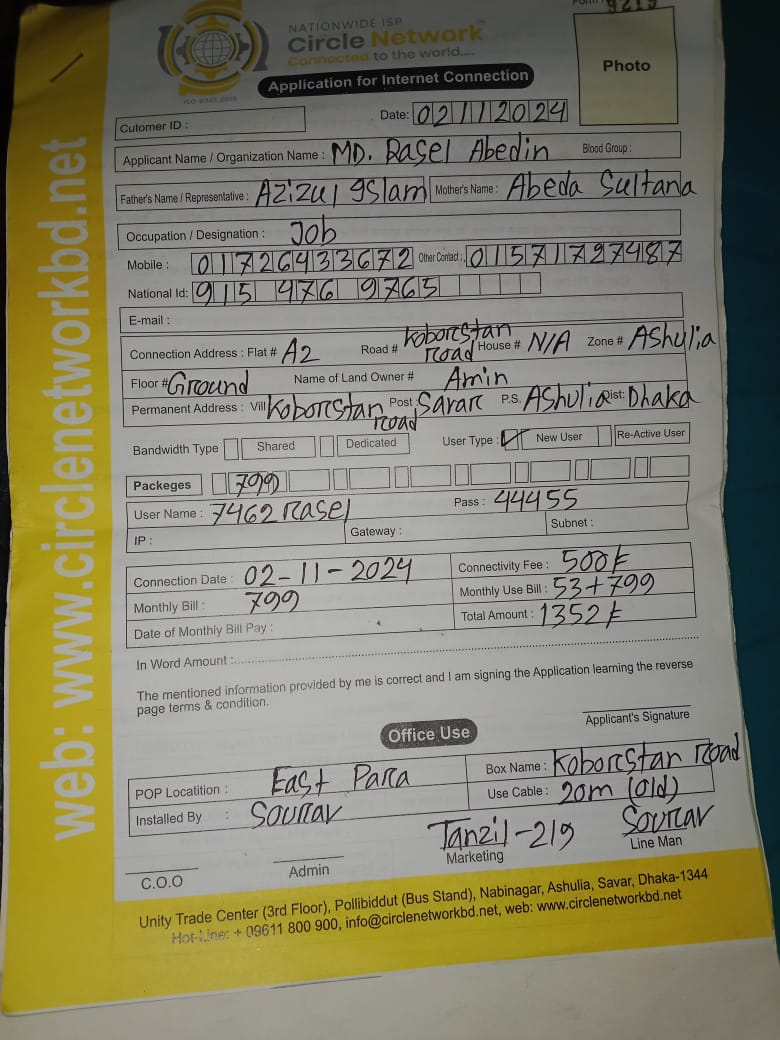 Form 9219
NATIONWIDE ISP
Circle Network
Connected to the world.....
ISO 9001:2015
Application for Internet Connection
Photo
Cutomer ID :
Date: 02112024
Applicant Name / Organization Name : MD. Rasel Abedin Blood Group :
Father's Name / Representative : Azizul Islam Mother's Name : Abeda Sultana
Occupation / Designation : Job
Mobile : 01726433672 Other Contact : 01571727487
National Id: 915 476 9765
E-mail :
Connection Address : Flat # A2 Road # Koborstan road House # N/A Zone # AShulia
Floor # Ground Name of Land Owner # Amin
Permanent Address : Vill Koborstan road Post : Savar P.S. AShulia Dist: Dhaka
Bandwidth Type Shared Dedicated User Type : New User Re-Active User
Packeges 799
User Name : 7462 Rasel Pass : 44455
IP : Gateway : Subnet :
Connection Date : 02-11-2024 Connectivity Fee : 500৳
Monthly Bill : 799 Monthly Use Bill : 53+799
Date of Monthly Bill Pay : Total Amount : 1352৳
In Word Amount :
The mentioned information provided by me is correct and I am signing the Application learning the reverse
page terms & condition.
Applicant's Signature
Office Use
POP Locatition : East Para Box Name : Koborstan road
Installed By : Sourav Use Cable : 20m (old)
Tanzil-219 Sourav
C.O.O Admin Marketing Line Man
Unity Trade Center (3rd Floor), Pollibiddut (Bus Stand), Nabinagar, Ashulia, Savar, Dhaka-1344
Hot-Line: + 09611 800 900, info@circlenetworkbd.net, web: www.circlenetworkbd.net
web: www.circlenetworkbd.net